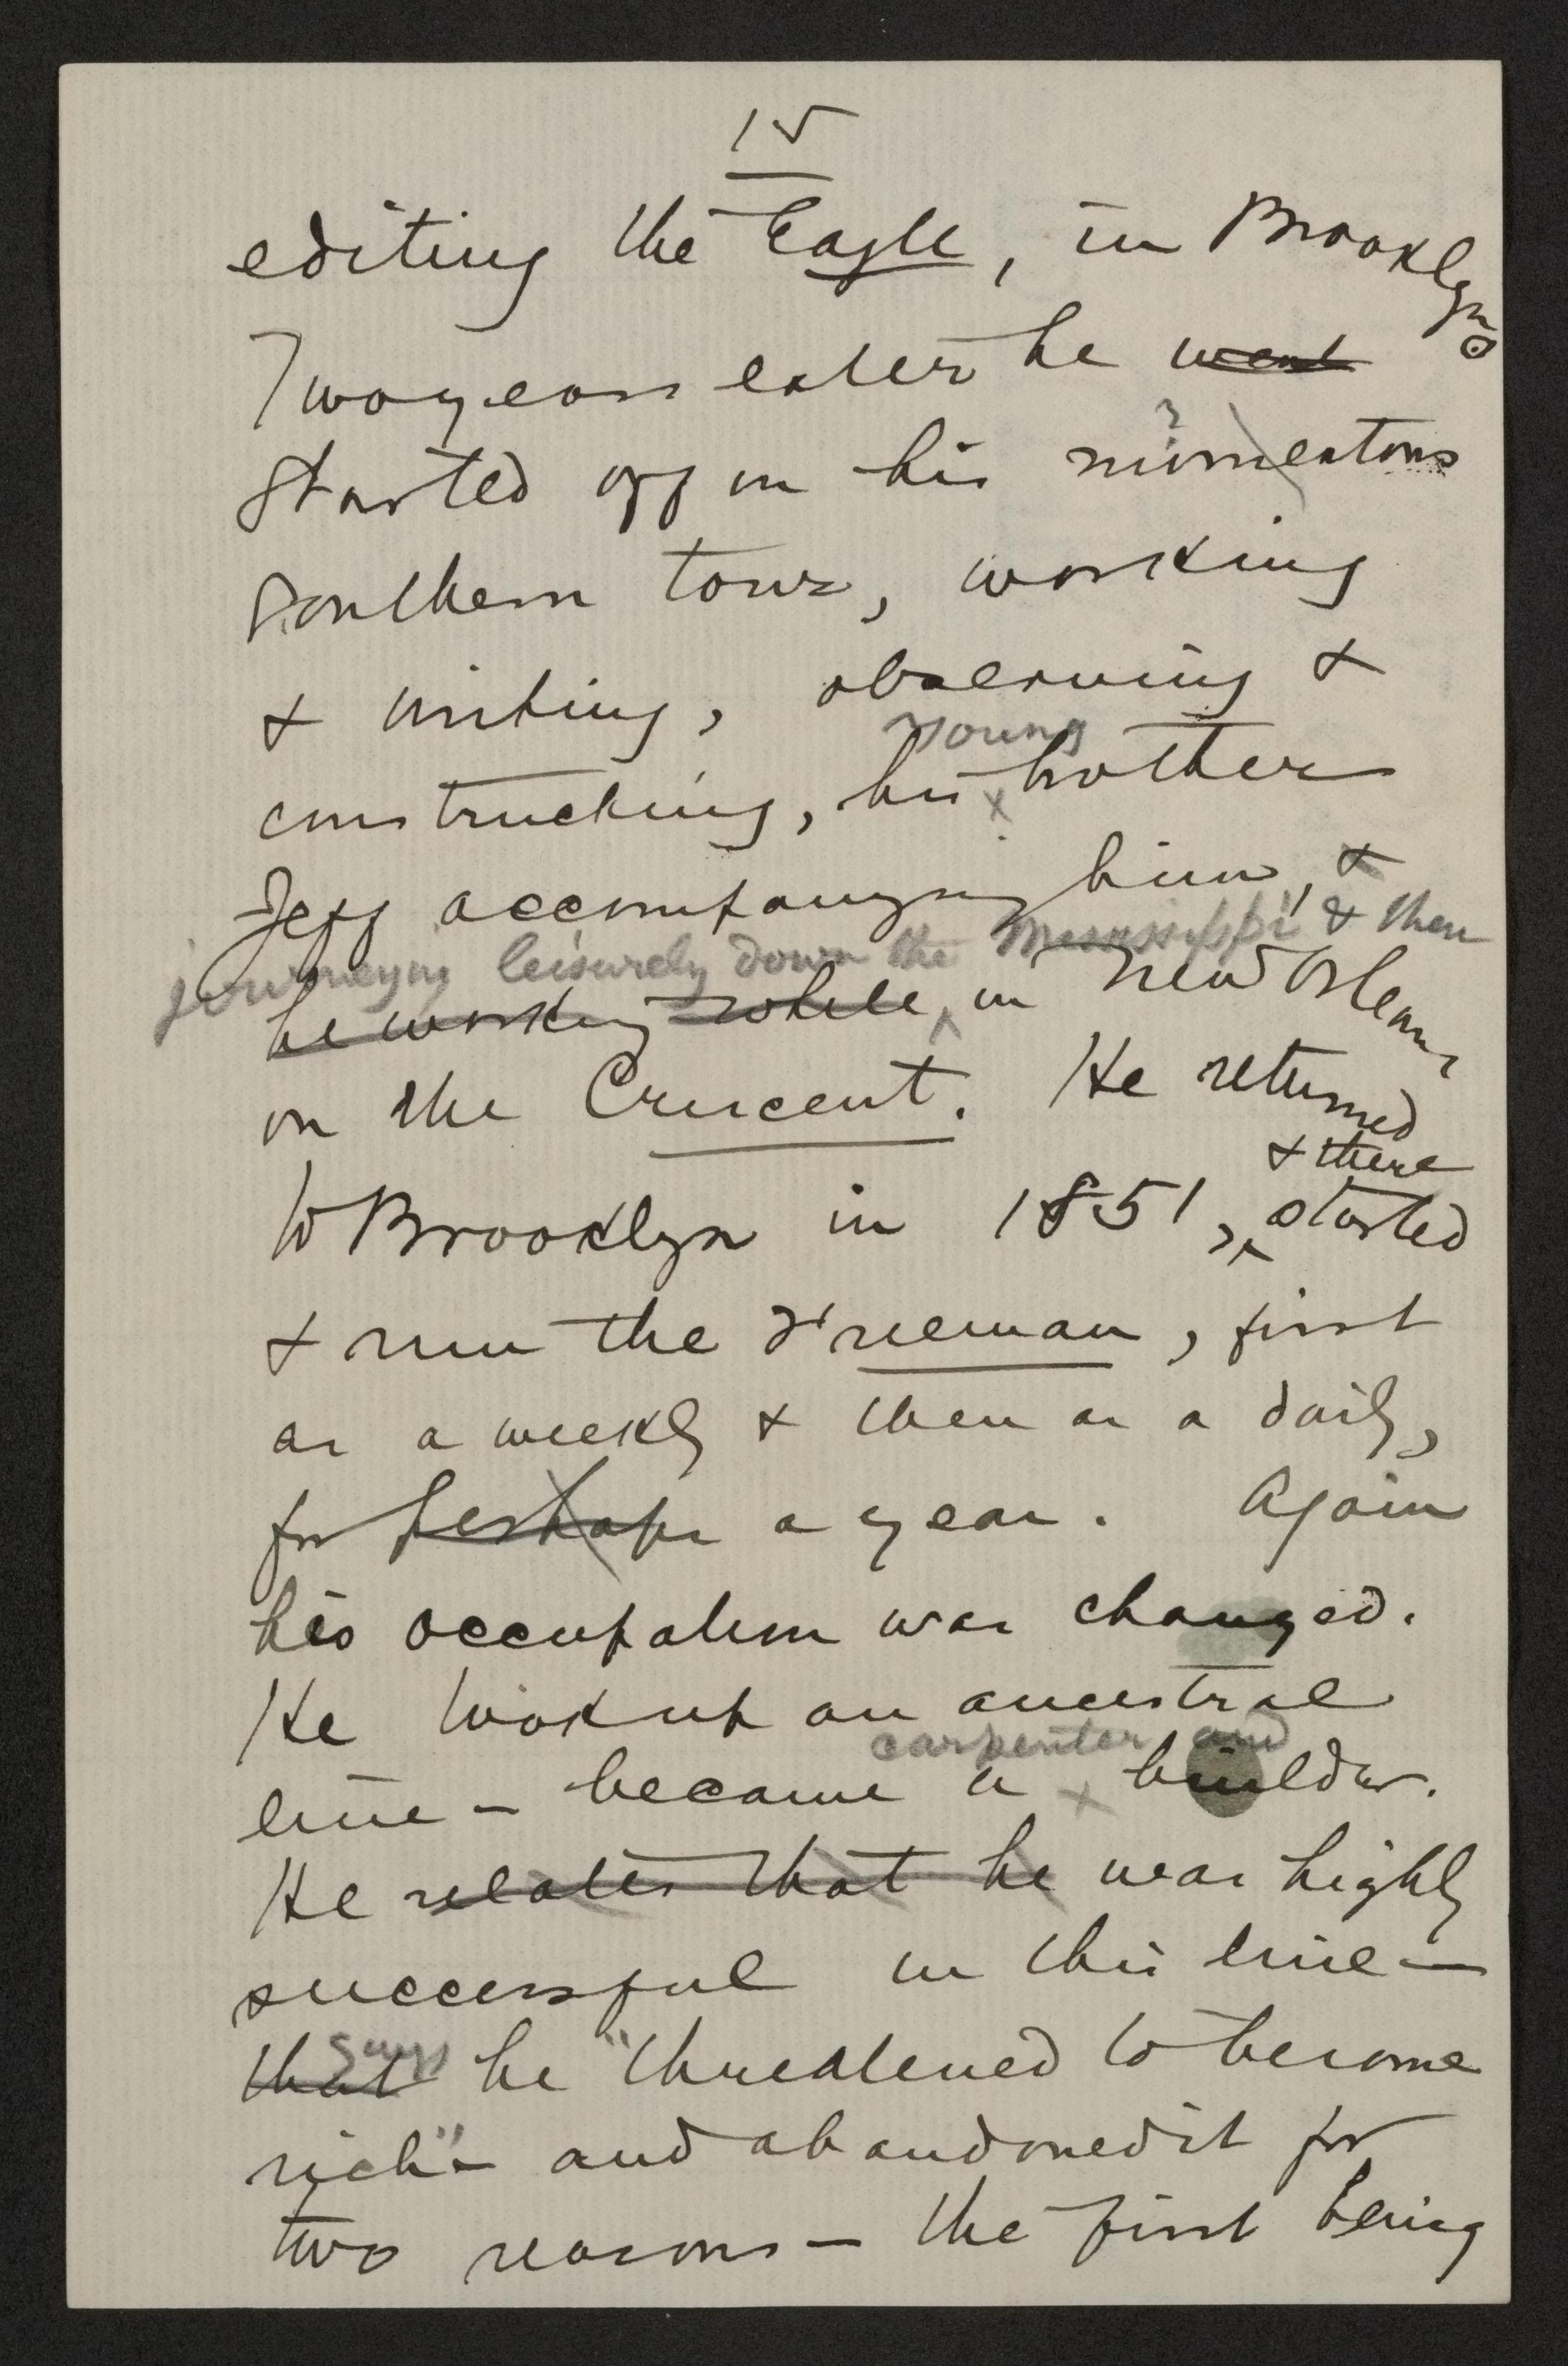 15
editing the Eagle, in Brooklyn.
Two years later he went
started off on his momentous
?
Southern tour, working
& writing, observing &
young
constructing, his brother
Jeff accompanying him, &
journeying leisurely down the Mississippi & then
he working while in New Orleans
on the Crescent. He returned
& there
to Brooklyn in 1851, started
& run the Freeman, first
as a weekly & then as a daily,
for perhaps a year. Again
his occupation was changed.
He took up an ancestral
carpenter and
line — became a builder.
He relates that he was highly
successful in this line —
says
that he "threatened to become
rich" — and abandoned it for
two reasons — the first being